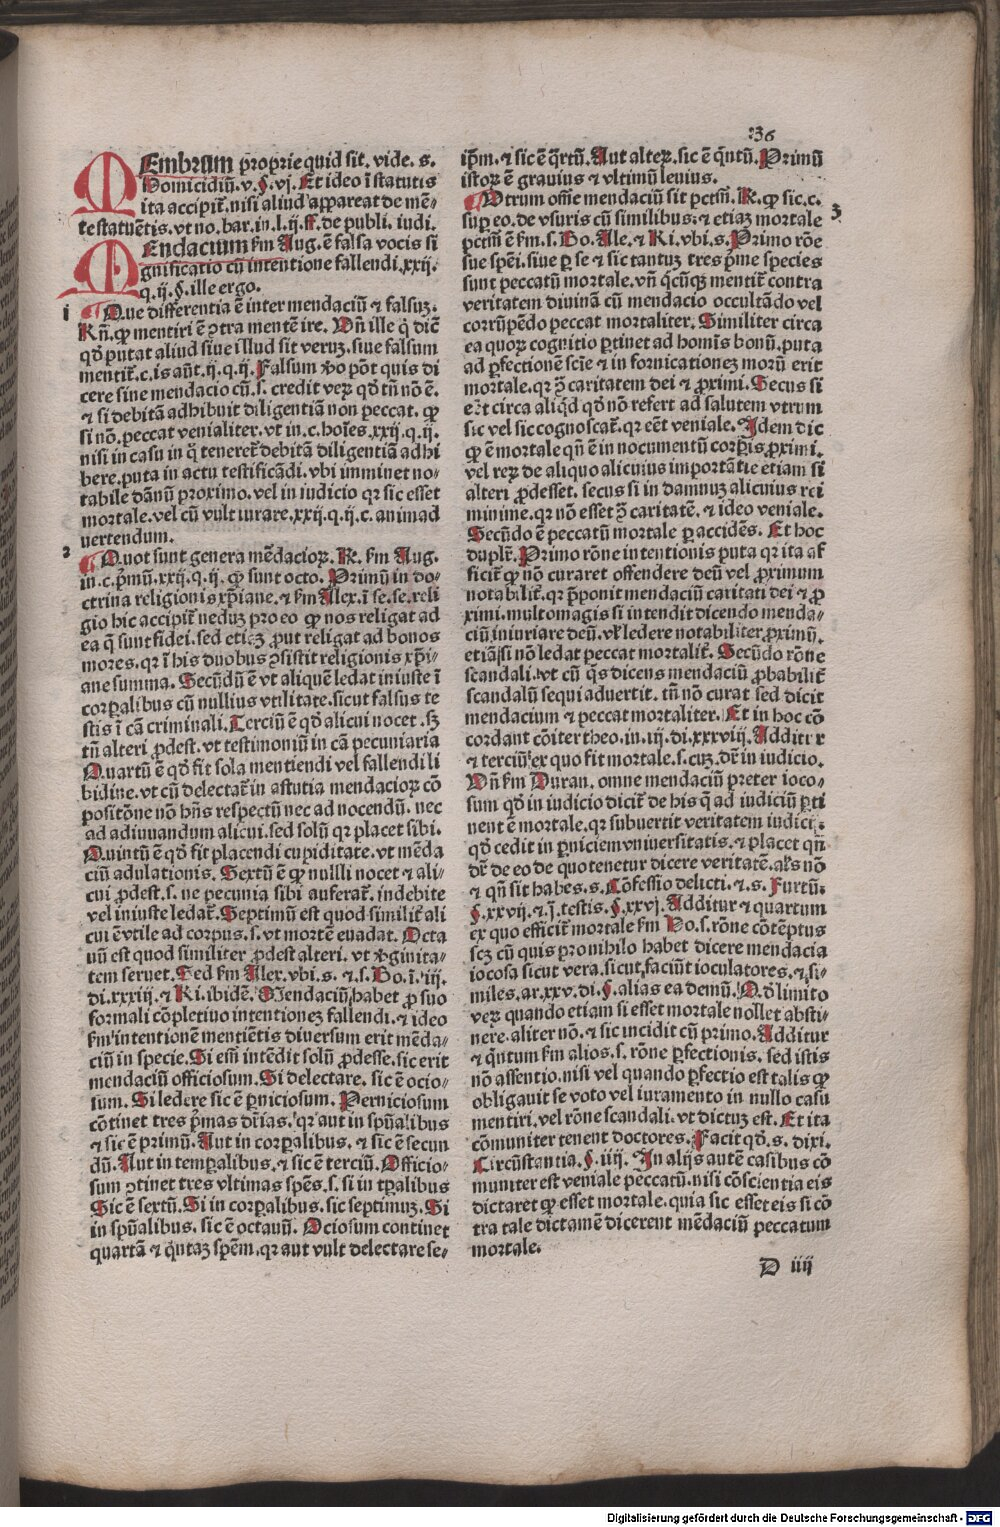 :36
MEmbrum proprie quid sit. vide. s.
Homicidiũ. v. §. vj. Et ideo ĩ statutis
ita accipit᷑. nisi aliud appareat de mē-
te statuētis. vt no. bar. in. l. ij. ff. de publi. iudi.
MEndacium ẜm Aug. ē falsa vocis si
gnificatio cũ intentione fallendi. xxij.
q. ij. §. ille ergo.
i
Que differentia ē inter mendaciũ ⁊ falsuꝫ.
Rñ. ꝙ mentiri ē ꝯtra mentē ire. Vñ ille q̇ dic̄
qđ putat aliud siue illud sit veruꝫ. siue falsum
mentit᷑. c. is aũt. ij. q. ij. Falsum ꝟo pōt quis di
cere sine mendacio cũ. s. credit veꝝ qđ tñ nō ē.
⁊ si debitā adhibuit diligentiā non peccat. ꝙ
si nō. peccat venialiter. vt in. c. hoīes. xxij. q. ij.
nisi in casu in q̇ teneret᷑ debitā diligentiā adhi
bere. puta in actu testificādi. vbi imminet no-
tabile dānũ proximo. vel in iudicio qꝛ sic esset
mortale. vel cũ vult iurare. xxij. q. ij. c. animad
uertendum.
2
Quot sunt genera mēdacioꝝ. R. ẜm Aug.
in. c. pͥmũ. xxij. q. ij. ꝙ sunt octo. Primũ in do-
ctrina religionis xp̄iane. ⁊ ẜm Alex. ĩ se. se. reli
gio hic accipit᷑ neduꝫ pro eo ꝙ nos religat ad
ea q̄ sunt fidei. sed etiaꝫ ꝓut religat ad bonos
mores. qꝛ ĩ his duobus ꝯsistit religionis xp̄i-
ane summa. Secũdũ ē vt aliquē ledat iniuste ĩ
corꝑalibus cũ nullius vtilitate. sicut falsus te
stis ĩ cā criminali. Terciũ ē qđ alicui nocet. sꝫ
tñ alteri ꝓdest. vt testimoniũ in cā pecuniaria
Quartũ ē qđ fit sola mentiendi vel fallendi li
bidine. vt cũ delectat᷑ in astutia mendacioꝝ cō
positōne nō hñs respectũ nec ad nocendũ. nec
ad adiuuandum alicui. sed solũ qꝛ placet sibi.
Quintũ ē qđ fit placendi cupiditate. vt mēda
ciũ adulationis. Sextũ ē ꝙ nullli nocet ⁊ ali-
cui ꝓdest. s. ne pecunia sibi auferat᷑. indebite
vel iniuste ledat᷑. Septimũ est quod similit᷑ ali
cui ē vtile ad corpus. s. vt mortē euadat. Octa
uũ est quod similiter ꝓdest alteri. vt ꝟginita-
tem seruet. Sed ẜm Alex. vbi. s. ⁊. s. Bo. ĩ. iij.
di. xxxiij. ⁊ Ri. ibidē. Mendaciũ habet ꝓ suo
formali cōpletiuo intentioneꝫ fallendi. ⁊ ideo
ẜm intentionē mentiētis diuersum erit mēda-
ciũ in specie. Si em̄ intēdit solũ ꝓdesse. sic erit
mendaciũ officiosum. Si delectare. sic ē ocio-
sum. Si ledere sic ē ꝑniciosum. Perniciosum
cōtinet tres pͥmas drīas. qꝛ aut in spũalibus
⁊ sic ē primũ. Aut in corꝑalibus. ⁊ sic ē secun
dũ. Aut in temꝑalibus. ⁊ sic ē terciũ. Officio-
sum ꝯtinet tres vltimas spēs. s. si in tꝑalibus
Sic ē sextũ. Si in corꝑalibus. sic septimuꝫ. Si
in spũalibus. sic ē octauũ. Ociosum continet
quartā ⁊ q̇ntaꝫ spēm. qꝛ aut vult delectare se-
ip̄m. ⁊ sic ē q̄rtũ. Aut alteꝝ. sic ē q̇ntũ. Primũ
istoꝝ ē grauius ⁊ vltimũ leuius.
Utrum omē mendaciũ sit pctm̄. R. ꝙ sic. c.
3
suꝑ eo. de vsuris cũ similibus. ⁊ etiaꝫ mortale
pctm̄ ē ẜm. s. Bo. Ale. ⁊ Ri. vbi. s. Primo rōe
sue spēi. siue ꝑ se ⁊ sic tantuꝫ tres pͥme species
sunt peccatũ mortale. vñ q̇cũqꝫ mentit᷑ contra
veritatem diuinā cũ mendacio occultādo vel
corrũpēdo peccat mortaliter. Similiter circa
ea quoꝝ cognitio ꝑtinet ad homīs bonũ. puta
ad ꝑfectionē sciē ⁊ in fornicationeꝫ morũ erit
mortale. qꝛ ꝯ̄ caritatem dei ⁊ ꝓximi. Secus si
eēt circa aliq̇d qđ nō refert ad salutem vtrum
sic vel sic cognoscat᷑. qꝛ eēt veniale. Idem dic
ꝙ ē mortale qñ ē in nocumentũ corꝑis ꝓximi.
vel reꝝ de aliquo alicuius importātie etiam si
alteri ꝓdesset. secus si in damnuꝫ alicuius rei
minime. qꝛ nō esset ꝯ̄ caritatē. ⁊ ideo veniale.
Secũdo ē peccatũ mortale ꝑ accidēs. Et hoc
duplr̄. Primo rōne intentionis puta qꝛ ita af
ficit᷑ ꝙ nō curaret offendere deũ vel ꝓximum
notabilit᷑. qꝛ p̄ponit mendaciũ caritati dei ⁊ ꝓ
ximi. multomagis si intendit dicendo menda-
ciũ iniuriare deũ. vl̓ ledere notabiliter ꝓximũ.
etiā si nō ledat peccat mortalit᷑. Secũdo rōne
scandali. vt cũ q̇s dicens mendaciũ ꝓbabilit᷑
scandalũ sequi aduertit. tñ nō curat sed dicit
mendacium ⁊ peccat mortaliter. Et in hoc cō
cordant cōiter theo. in. iij. di. xxxviij. Additur
⁊ terciũ ex quo fit mortale. s. cuꝫ dr̄ in iudicio.
Vñ ẜm Duran. omne mendaciũ preter ioco-
sum qđ in iudicio dicit᷑ de his q̄ ad iudiciũ ꝑti
nent ē mortale. qꝛ subuertit veritatem iudicij.
qđ cedit in ꝑniciem vniuersitatis. ⁊ placet qñ
dr̄ de eo de quo tenetur dicere veritatē. als̄ nō
⁊ qñ sit habes. s. Cōfessio delicti. ⁊. s. Furtũ.
§. xxvij. ⁊ ĩ. testis. §. xxvj. Additur ⁊ quartum
ex quo efficit᷑ mortale ẜm Ho. s. rōne cōtēptus
scꝫ cũ quis pro nihilo habet dicere mendacia
iocosa sicut vera. sicut faciũt ioculatores. ⁊ si-
miles. ar. xxv. di. §. alias ea demũ. Qđ limito
veꝝ quando etiam si esset mortale nollet absti-
nere. aliter nō. ⁊ sic incidit cũ primo. Additur
⁊ q̇ntum ẜm alios. s. rōne ꝑfectionis. sed istis
nō assentio. nisi vel quando ꝑfectio est talis ꝙ
obligauit se voto vel iuramento in nullo casu
mentiri. vel rōne scandali. vt dictuꝫ est. Et ita
cōmuniter tenent doctores. Facit qđ. s. dixi.
Circũstantia. §. iiij. In alijs autē casibus cō
muniter est veniale peccatũ. nisi cōscientia eis
dictaret ꝙ esset mortale. quia sic esset eis si cō
tra tale dictamē dicerent mēdaciũ peccatum
mortale.
D iiij
Digitalisierung gefördert durch die Deutsche Forschungsgemeinschaft - DFG